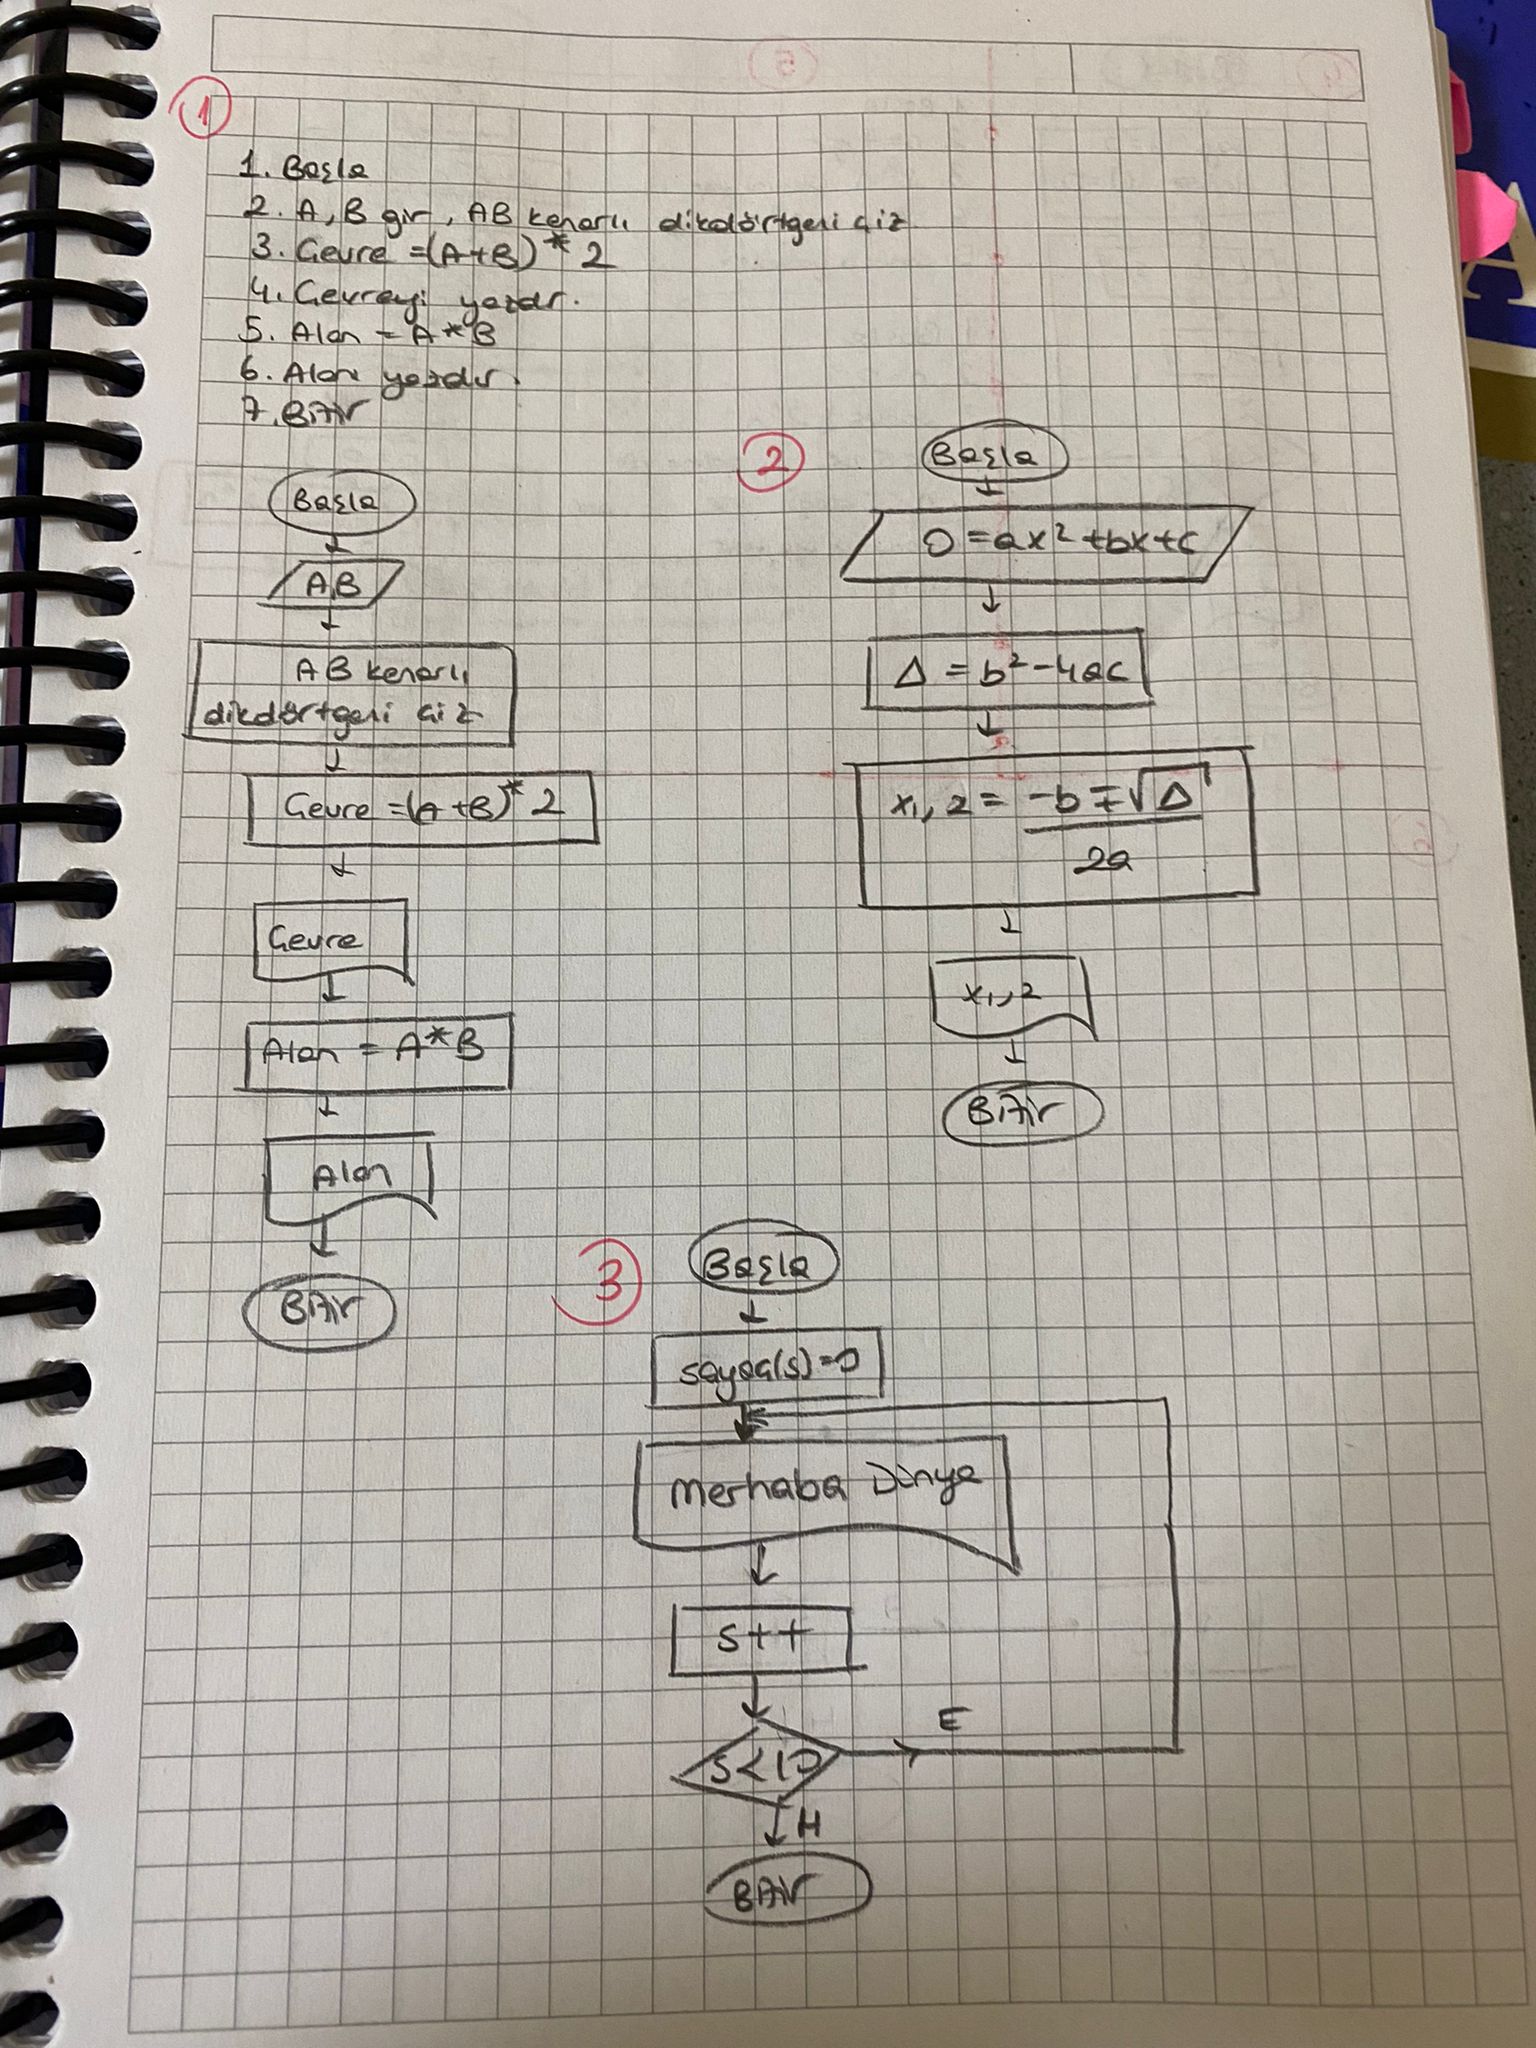 1
1. Başla
2. A, B gir, AB kenarlı dikdörtgeni çiz
3. Çevre =(A+B)* 2
4. Çevreyi yazdır.
5. Alan = A*B
6. Alanı yazdır.
7. Bitir
Başla
A,B
AB kenarlı
dikdörtgeni çiz
Çevre =(A+B)* 2
Çevre
Alan = A*B
Alan
Bitir
2
Başla
0 =ax²+bx+c
Δ = b²-4ac
x₁,₂ = -b∓√Δ
2a
x₁,₂
Bitir
3
Başla
sayaç(s)=0
Merhaba Dünya
s++
s<10
E
H
Bitir